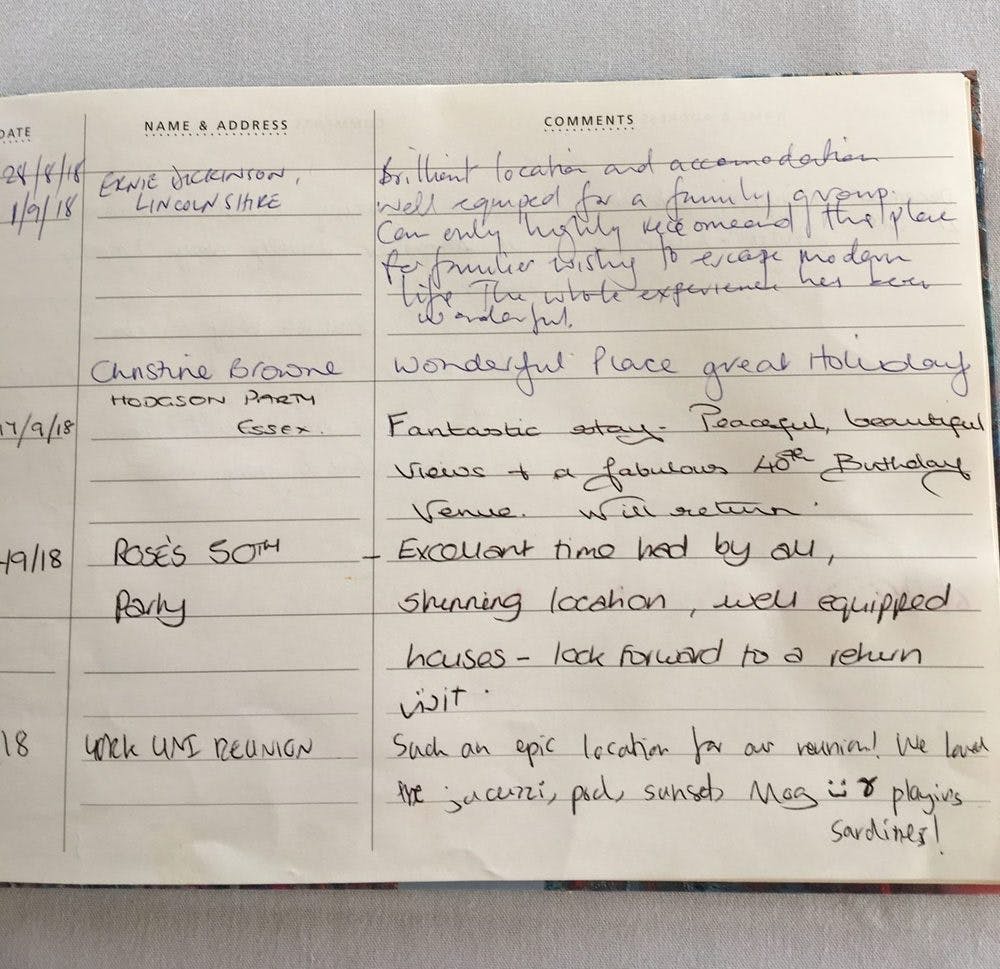 DATE NAME & ADDRESS COMMENTS
28/8/18 ERNIE DICKINSON, Brillient location and accomodation
1/9/18 LINCOLNSHIRE Well equiped for a family group.
Can only highly recomeend this place
for families wishing to escape modern
life The whole experience has been
wonderful.
Christine Browne Wonderful Place great Holiday
HODGSON PARTY
17/9/18 ESSEX. Fantastic stay - Peaceful, beautiful
views + a fabulous 40th Birthday
Venue. Will return.
/9/18 ROSE'S 50TH - Excellent time had by all,
Party stunning location, well equipped
houses - look forward to a return
visit.
18 YORK UNI REUNION Such an epic location for our reunion! We loved
the jacuzzi, pool, sunsets, Mog & playing
sardines!